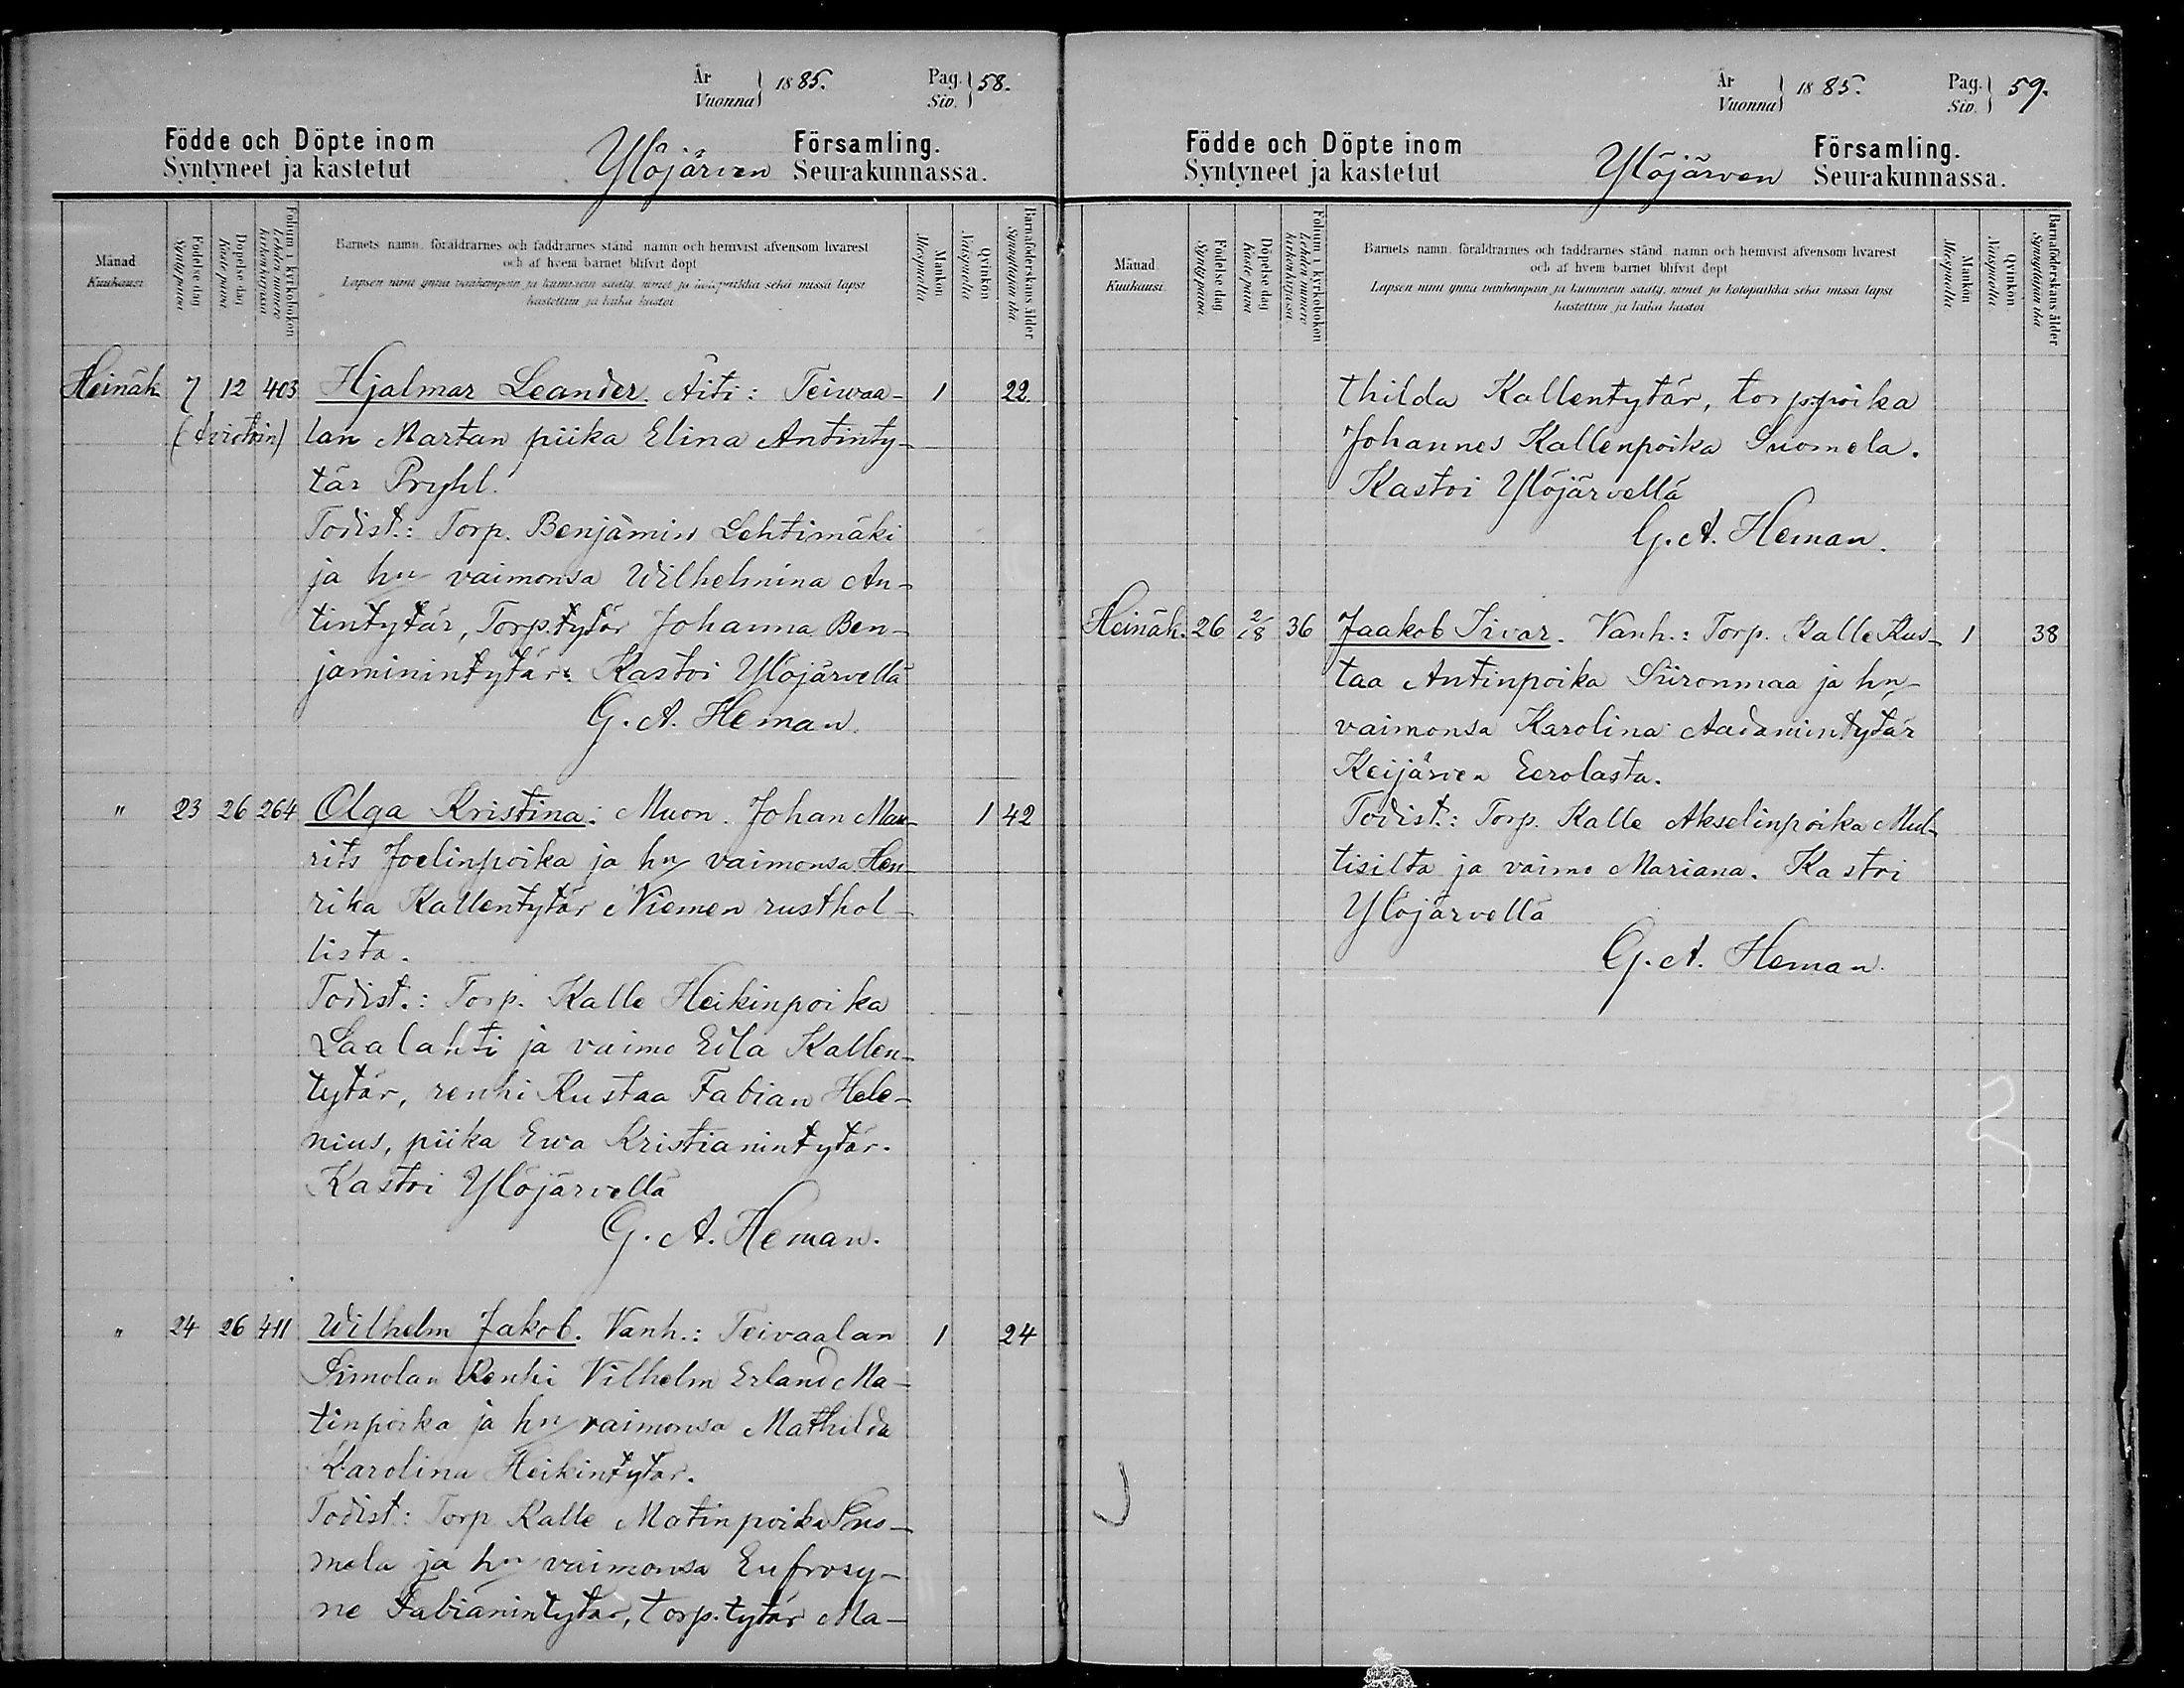 År
Vuonna } 1885.
Pag.
Siv. } 58.
Födde och Döpte inom
Syntyneet ja kastetut
Ylöjärven
Församling.
Seurakunnassa.
Månad
Kuukausi
Födelse dag
Syntypäivä
Döpelse dag
Kaste päivä
Folium i kyrkoboken
Lehden numero kirkonkirjassa
Barnets namn, föräldrarnes och faddrarnes stånd, namn och hemvist äfvensom hvarest
och af hvem barnet blifvit döpt
Lapsen nimi ynnä vanhempain ja kummein sääty, nimet ja kotopaikka sekä missä lapsi
kastettiin ja kuka kastoi
Mankön
Miespuolia
Qvinkön
Naispuolia
Barnaföderskans ålder
Synnyttäjän ikä
Heinäk. 7 12 403 Hjalmar Leander. Äiti: Teiwaa- 1 22
(Aviotoin) lan Martan piika Elina Antinty-
tär Pryhl.
Todist.: Torp. Benjamin Lehtimäki
ja hn vaimonsa Wilhelmina An-
tintytär, Torp.tytär Johanna Ben-
jaminintytär. Kastoi Ylöjärvellä
G. A. Heman.
" 23 26 264 Olga Kristina. Muon. Johan Mau- 1 42
rits Joelinpoika ja hn vaimonsa Hen-
rika Kallentytär Niemen rusthol-
lista.
Todist.: Torp. Kalle Heikinpoika
Laalahti ja vaimo Eila Kallen-
tytär, renki Kustaa Fabian Hele-
nius, piika Ewa Kristianintytär.
Kastoi Ylöjärvellä
G. A. Heman.
" 24 26 411 Wilhelm Jakob. Vanh.: Teivaalan 1 24
Simolan Renki Vilhelm Erland Ma-
tinpoika ja hn vaimonsa Mathilda
Karolina Heikintytär.
Todist: Torp Kalle Matinpoika Suo-
mela ja hn vaimonsa Eufrosy-
ne Fabianintytär, torp.tytär Ma-
År
Vuonna } 1885.
Pag.
Siv. } 59.
Födde och Döpte inom
Syntyneet ja kastetut
Ylöjärven
Församling.
Seurakunnassa.
Månad
Kuukausi
Födelse dag
Syntypäivä
Döpelse dag
Kaste päivä
Folium i kyrkoboken
Lehden numero kirkonkirjassa
Barnets namn, föräldrarnes och faddrarnes stånd, namn och hemvist äfvensom hvarest
och af hvem barnet blifvit döpt
Lapsen nimi ynnä vanhempain ja kummein sääty, nimet ja kotopaikka sekä missä lapsi
kastettiin ja kuka kastoi
Mankön
Miespuolia
Qvinkön
Naispuolia
Barnaföderskans ålder
Synnyttäjän ikä
thilda Kallentytär, torp.poika
Johannes Kallenpoika Suomela.
Kastoi Ylöjärvellä
G. A. Heman.
Heinäk. 26 2/8 36 Jaakob Iivar. Vanh.: Torp. Kalle Kus- 1 38
taa Antinpoika Siironmaa ja hn
vaimonsa Karolina Aadamintytär
Keijärven Eerolasta.
Todist.: Torp. Kalle Akselinpoika Mul-
tisilta ja vaimo Mariana. Kastoi
Ylöjärvellä
G. A. Heman.